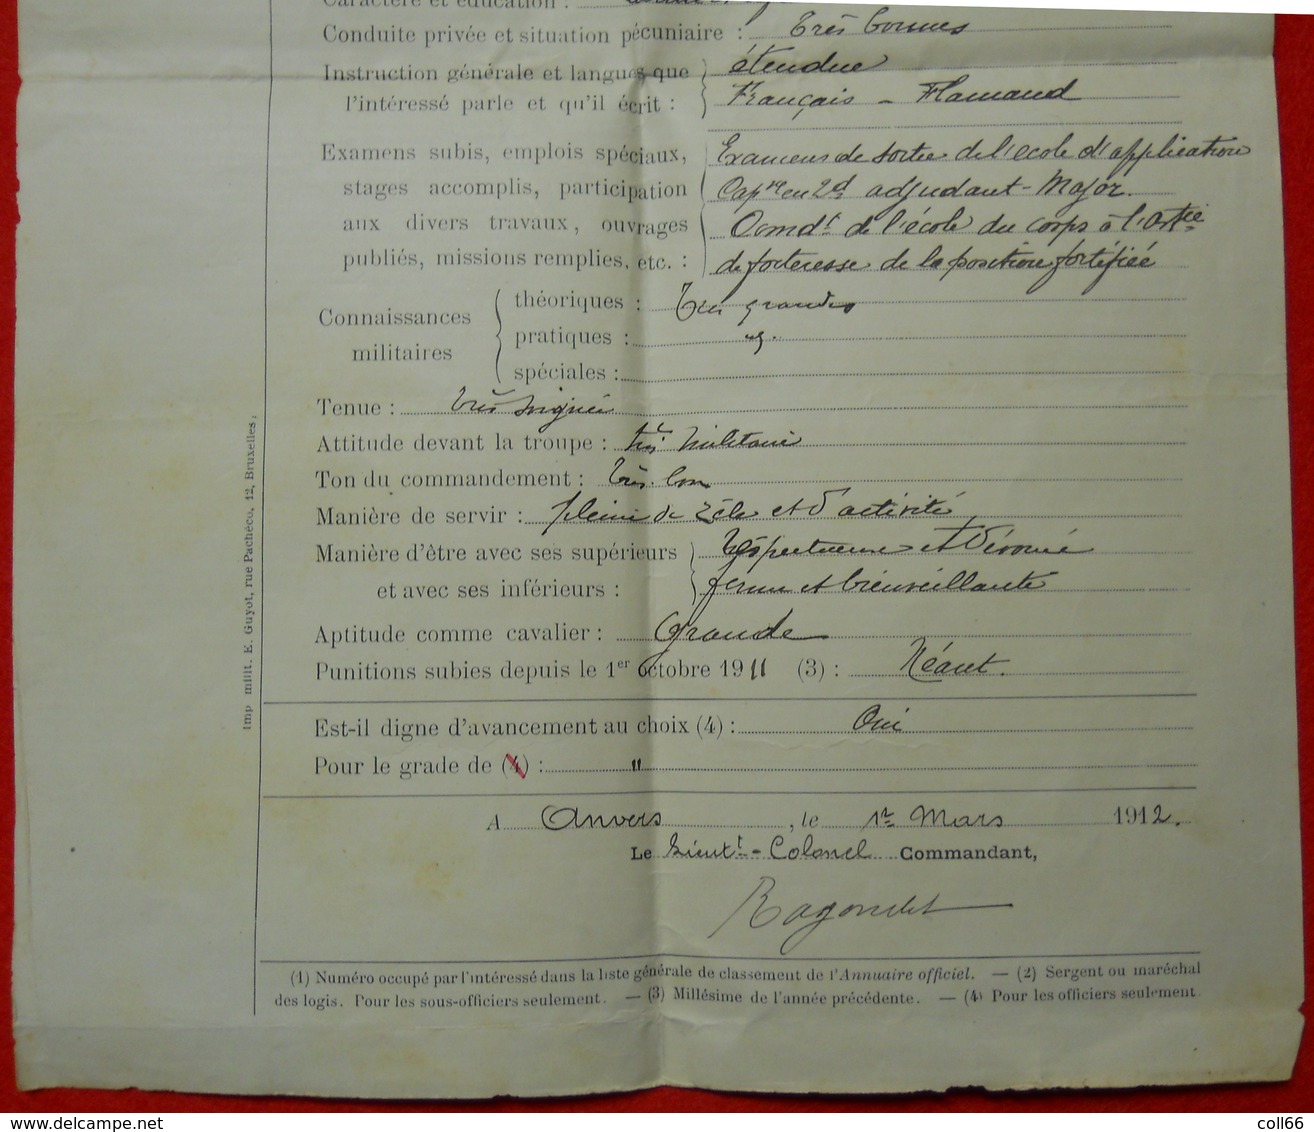 Caractère et éducation :
Conduite privée et situation pécuniaire : très bonnes
Instruction générale et langues que étendue
l'intéressé parle et qu'il écrit : Français - Flamand
Examens subis, emplois spéciaux, Examens de sortie de l'école d'application
stages accomplis, participation Cap^ne en 2^d adjudant-Major.
aux divers travaux, ouvrages Comd^t de l'école du corps à l'Art^ie
publiés, missions remplies, etc. : de forteresse de la position fortifiée
Connaissances militaires
théoriques : Très grandes
pratiques : id.
spéciales :
Tenue : très soignée
Attitude devant la troupe : très militaire
Ton du commandement : très bon
Manière de servir : pleine de zèle et d'activité
Manière d'être avec ses supérieurs Respectueuse et dévouée
et avec ses inférieurs : ferme et bienveillante
Aptitude comme cavalier : Grande
Punitions subies depuis le 1er octobre 1911 (3) : Néant.
Est-il digne d'avancement au choix (4) : Oui
Pour le grade de (4) : "
A Anvers, le 1er Mars 1912.
Le Lieut^t-Colonel Commandant,
(1) Numéro occupé par l'intéressé dans la liste générale de classement de l'Annuaire officiel. — (2) Sergent ou maréchal
des logis. Pour les sous-officiers seulement. — (3) Millésime de l'année précédente. — (4) Pour les officiers seulement
Imp milit. E. Guyot, rue Pachéco, 12, Bruxelles.
www.delcampe.net
coll66